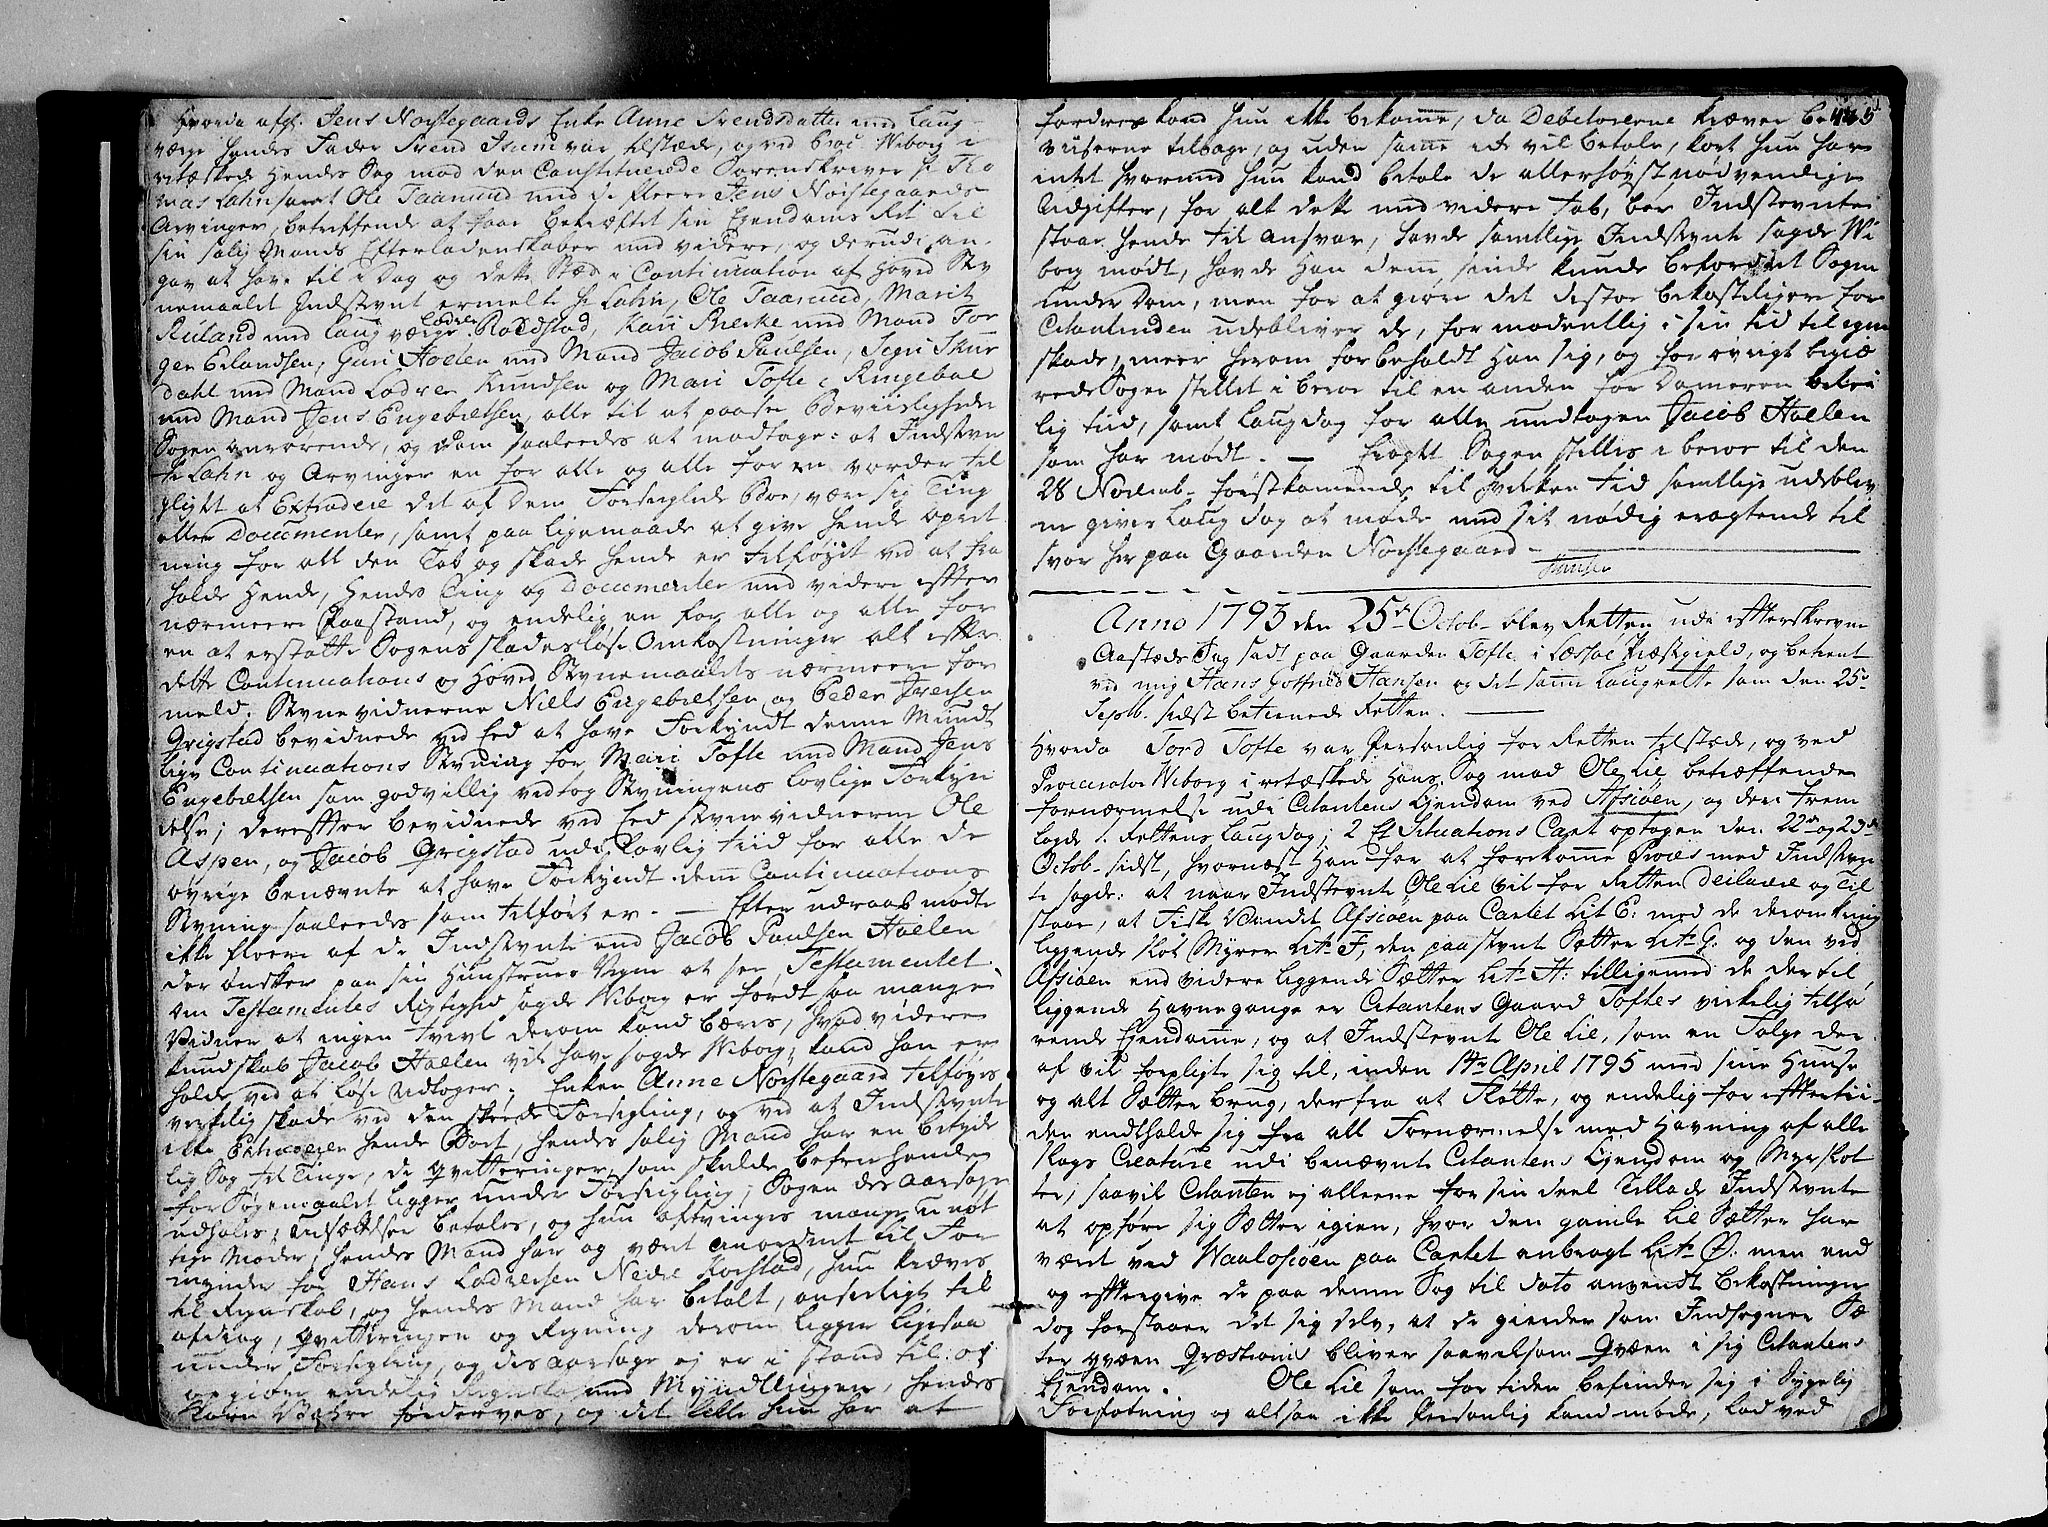 Hvorda afg. Jens Norstegaards Enke Anne Svendsdatter med Laug
værge hendes Fader Svend Isum var tilstæde, og ved Proc. Wiborg i
retæskede hendes Sag mod den Constituerede Sorenskriver Hr. Tho
mas Lahn samt Ole Taamund med de fleere Jens Norstegaards
Arvinger, betreffende at faae bekræftet sin Ejendoms Ret til
sin salig Mands Efterladenskaber med videre, og derudi an-
gav at have til i Dag og dette Stæd i Continuation af Hoved Stæv
nemaalet Indstevnt ermelte Hr. Lahn, Ole Taamund, Marit
Ruland med Laug værge Lodver Roldstad, Kari Brecke med Mand Tor
ger Erlandsen, Guri Hoelen med Mand Jacob Paulsen, Segri Skur
dahl med Mand Lodver Knudsen og Mari Tofte i Ringeboe
med Mand Jens Engebretsen, alle til at paasee Beviisligheder
Sagen anrørende, og Dom saaleedes at modtage: at Indstevn
te Lahn og Arvinger en for alle og alle for en vorder til
pligt at Extradere det af dem Forseiglede Boe, være sig Ting
eller Documenter, samt paa ligemaade at give hende opret
ning for alt den Tab og skade hende er tilføyet ved at fra
holde hende, hendes Ting og Documenter med videre effter
nærmeere Paastand, og endelig en for alle og alle for
en at erstatte Sagens skadesløse Omkostninger alt effter
dette Continuations og Hoved Stævnemaalets nærmeere for
meld. Stævnevidnerne Niels Engebretsen og Peder Iversen
Grigstad bevidnede ved Eed at have Forkyndt denne Mundt
lige Continuations Stævning for Mari Tofte med Mand Jens
Engebretsen som godvillig vedtog Stævningens lovlige Forkyn
delse; dereffter bevidnede ved Eed Stævnevidnerne Ole
Aspen, og Jacob Grigstad udi Lovlig tiid for alle de
øvrige benævnte at have Forkyndt denne Continuations
Stævning saaleedes som tilført er. — Effter udraab mødte
ikke fleere af de Indstevnte end Jacob Paulsen Hoelen
der ønsker paa sin Hustrues Vegne at see Testamentet.
Om Testamentes Rigtighed sagde Wiborg er førdt saa mange
Vidner at ingen tvivl derom kand bæres, hvad videre
kundskab Jacob Hoelen vil have sagde Wiborg, kand han er
holde ved at løse Udtoger. Enken Anne Norstegaard tilføyes
verkelig skade ved den skeede Forsegling, og ved at Indstevnte
ikke Extraderer hende Boet, hendes salig Mand har en betyde
lig Sag til Tinge, de qvitteringer, som skulde befrie hende
for Søgemaalet ligger under Forsegling; Sagen des aarsage
udhales, Udsættelser betales, og hun aftvinges mange unøt
tige Møder; hendes Mand har og været anordnet til For
mynder for Hans Lodversen Nedre Korstad, hun kræves
til Regnskab, og hendes Mand har betalt, anseeligt til
afdrag, qvitteringen og Regning derom ligger ligesaa
under Forsegling, og des aarsage ej er i stand til at
at giøre endelig Regnskab med Myndlingen, hendes
Korn Vahre forderves, og det lille hun har at
445
fordres kand hun ikke bekomme, da Debetorerne kræver Be
viiserne tilbage, og uden samme ei vil betale, kort hun har
intet hvormed hun kand betale de allerhøyst nødvendige
Udgifter, for alt dette med videre tab, bør Indstevnte
staae hende til ansvar, havde samtlige Indstevnte sagde Wi
borg mødt, havde han dennesinde kunde befordret Sagen
under Dom, men for at giøre det desto bekosteligere for
Citantinden udebliver de, formodentlig i sin tid til egen
skade, meer herom forbeholdt han sig, og for øvrigt begiæ
rede Sagen stillet i beroe til en anden for Dommeren belei
lig tiid, samt Laugdag for alle undtagen Jacob Hoelen
som har mødt. — Eragtt Sagen stilles i beroe til den
28 Novemb. førstkomende til hvilken tid samtlige udeblev
ne gives Laugdag at møde med sit nødig eragtende til
svar her paa Gaarden Norstegaard —
Hansen
Anno 1793 den 25de Octob. blev Retten udi effterskrevne
Aastæds Sag sadt paa Gaarden Tofte i Læssøe Præstegield, og betient
ved mig Hans Gotfried Hansen og det samme Laugrette som den 25de
Septb. sidst betienede Retten. —
Hvorda Tord Tofte var Personlig for Retten tilstæde, og ved
Procurator Wiborg i rettæskede hans Sag mod Ole Lie betreffende
fornærmelse udi Citantens Ejendom ved Afsiøen, og der frem
lagde 1. Rettens Laugdag; 2 Et Situations Cart optagen den 22de og 23de
Octob. sidst, hvornæst han for at forekomme Proces med Indstevn
te sagde: at naar Indstevnte Ole Lie vil for Retten Declarere og til
staae, at Fiske Vandet Afsiøen paa Cartet Lit E: med de deromkring
liggende Slot Myrer Lit. F, den paastevnte Sætter Lit. G. og den ved
Afsiøen end videre liggende Sætter Lit. H: tilligemed de der til
liggende Havnegange er Citantens Gaard Toftes virkelig tilhø
rende Ejendomme, og at Indstevnte Ole Lie, som en Følge der
af vil forpligte sig til, inden 14de April 1795 med sine Huuse
og alt Sætter brug, derfra at Fløtte, og endelig for effterti-
den endtholde sig fra all Fornærmelse med Havning af alle
slags Creature udi benævnte Citantens Ejendom og Myrslot
ter, saa vil Citanten ej alleene for sin deel Tillade Indstevnte
at opføre sig Sætter igien, hvor den gamle Lie Sætter har
været ved Waalosiøen paa Cartet anbragt Lit. Ø. men end
og efftergive de paa denne Sag til dato anvendt bekostninger
dog forstaaer det sig selv, at de giender som Indsogner Sæ
ter qvæen Qræstionis bliver saavelsom Qvæen i sig Citantens
Ejendom. Ole Lie som for tiden befinder sig i Sygelig
Forfatning og altsaa ikke Personlig kand møde, lod ved